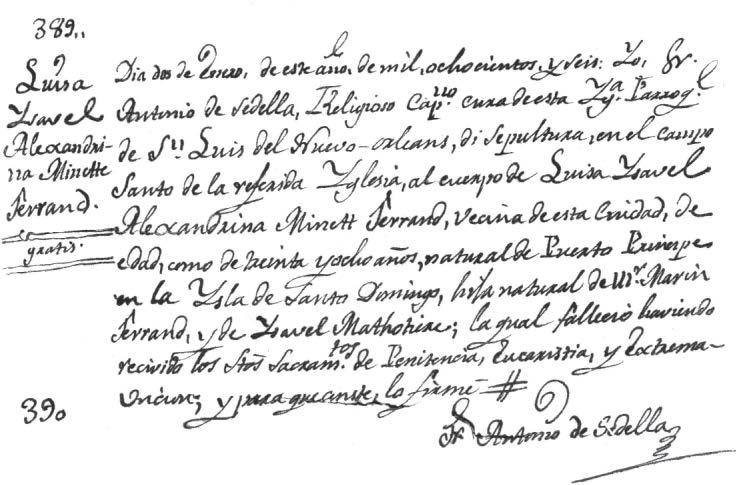 389,,
Luisa
Ysavel
Alexandri-
na Minette
Ferrand.
gratis.
Dia dos de Enero, de este año, de mil, ochocientos, y seis: Yo, Fr.
Antonio de Sedella, Religioso Cap.no cura de esta Yg.a Parroq.l
de S.n Luis del Nuevo-orleans, di sepultura, en el campo
Santo de la referida Yglesia, al cuerpo de Luisa Ysavel
Alexandrina Minett Ferrand, vecina de esta Ciudad, de
edad, como de treinta y ocho años, natural de Puerto Principe
en la Ysla de Santo Domingo, hija natural de Marin
Ferrand, y de Ysavel; la qual falleció haviendo
recivido los Stõs Sacram.tos de Penitencia, Eucaristia, y Extrema-
Uncion; y para que conste, lo firmé
Fr. Antonio de Sedella
390